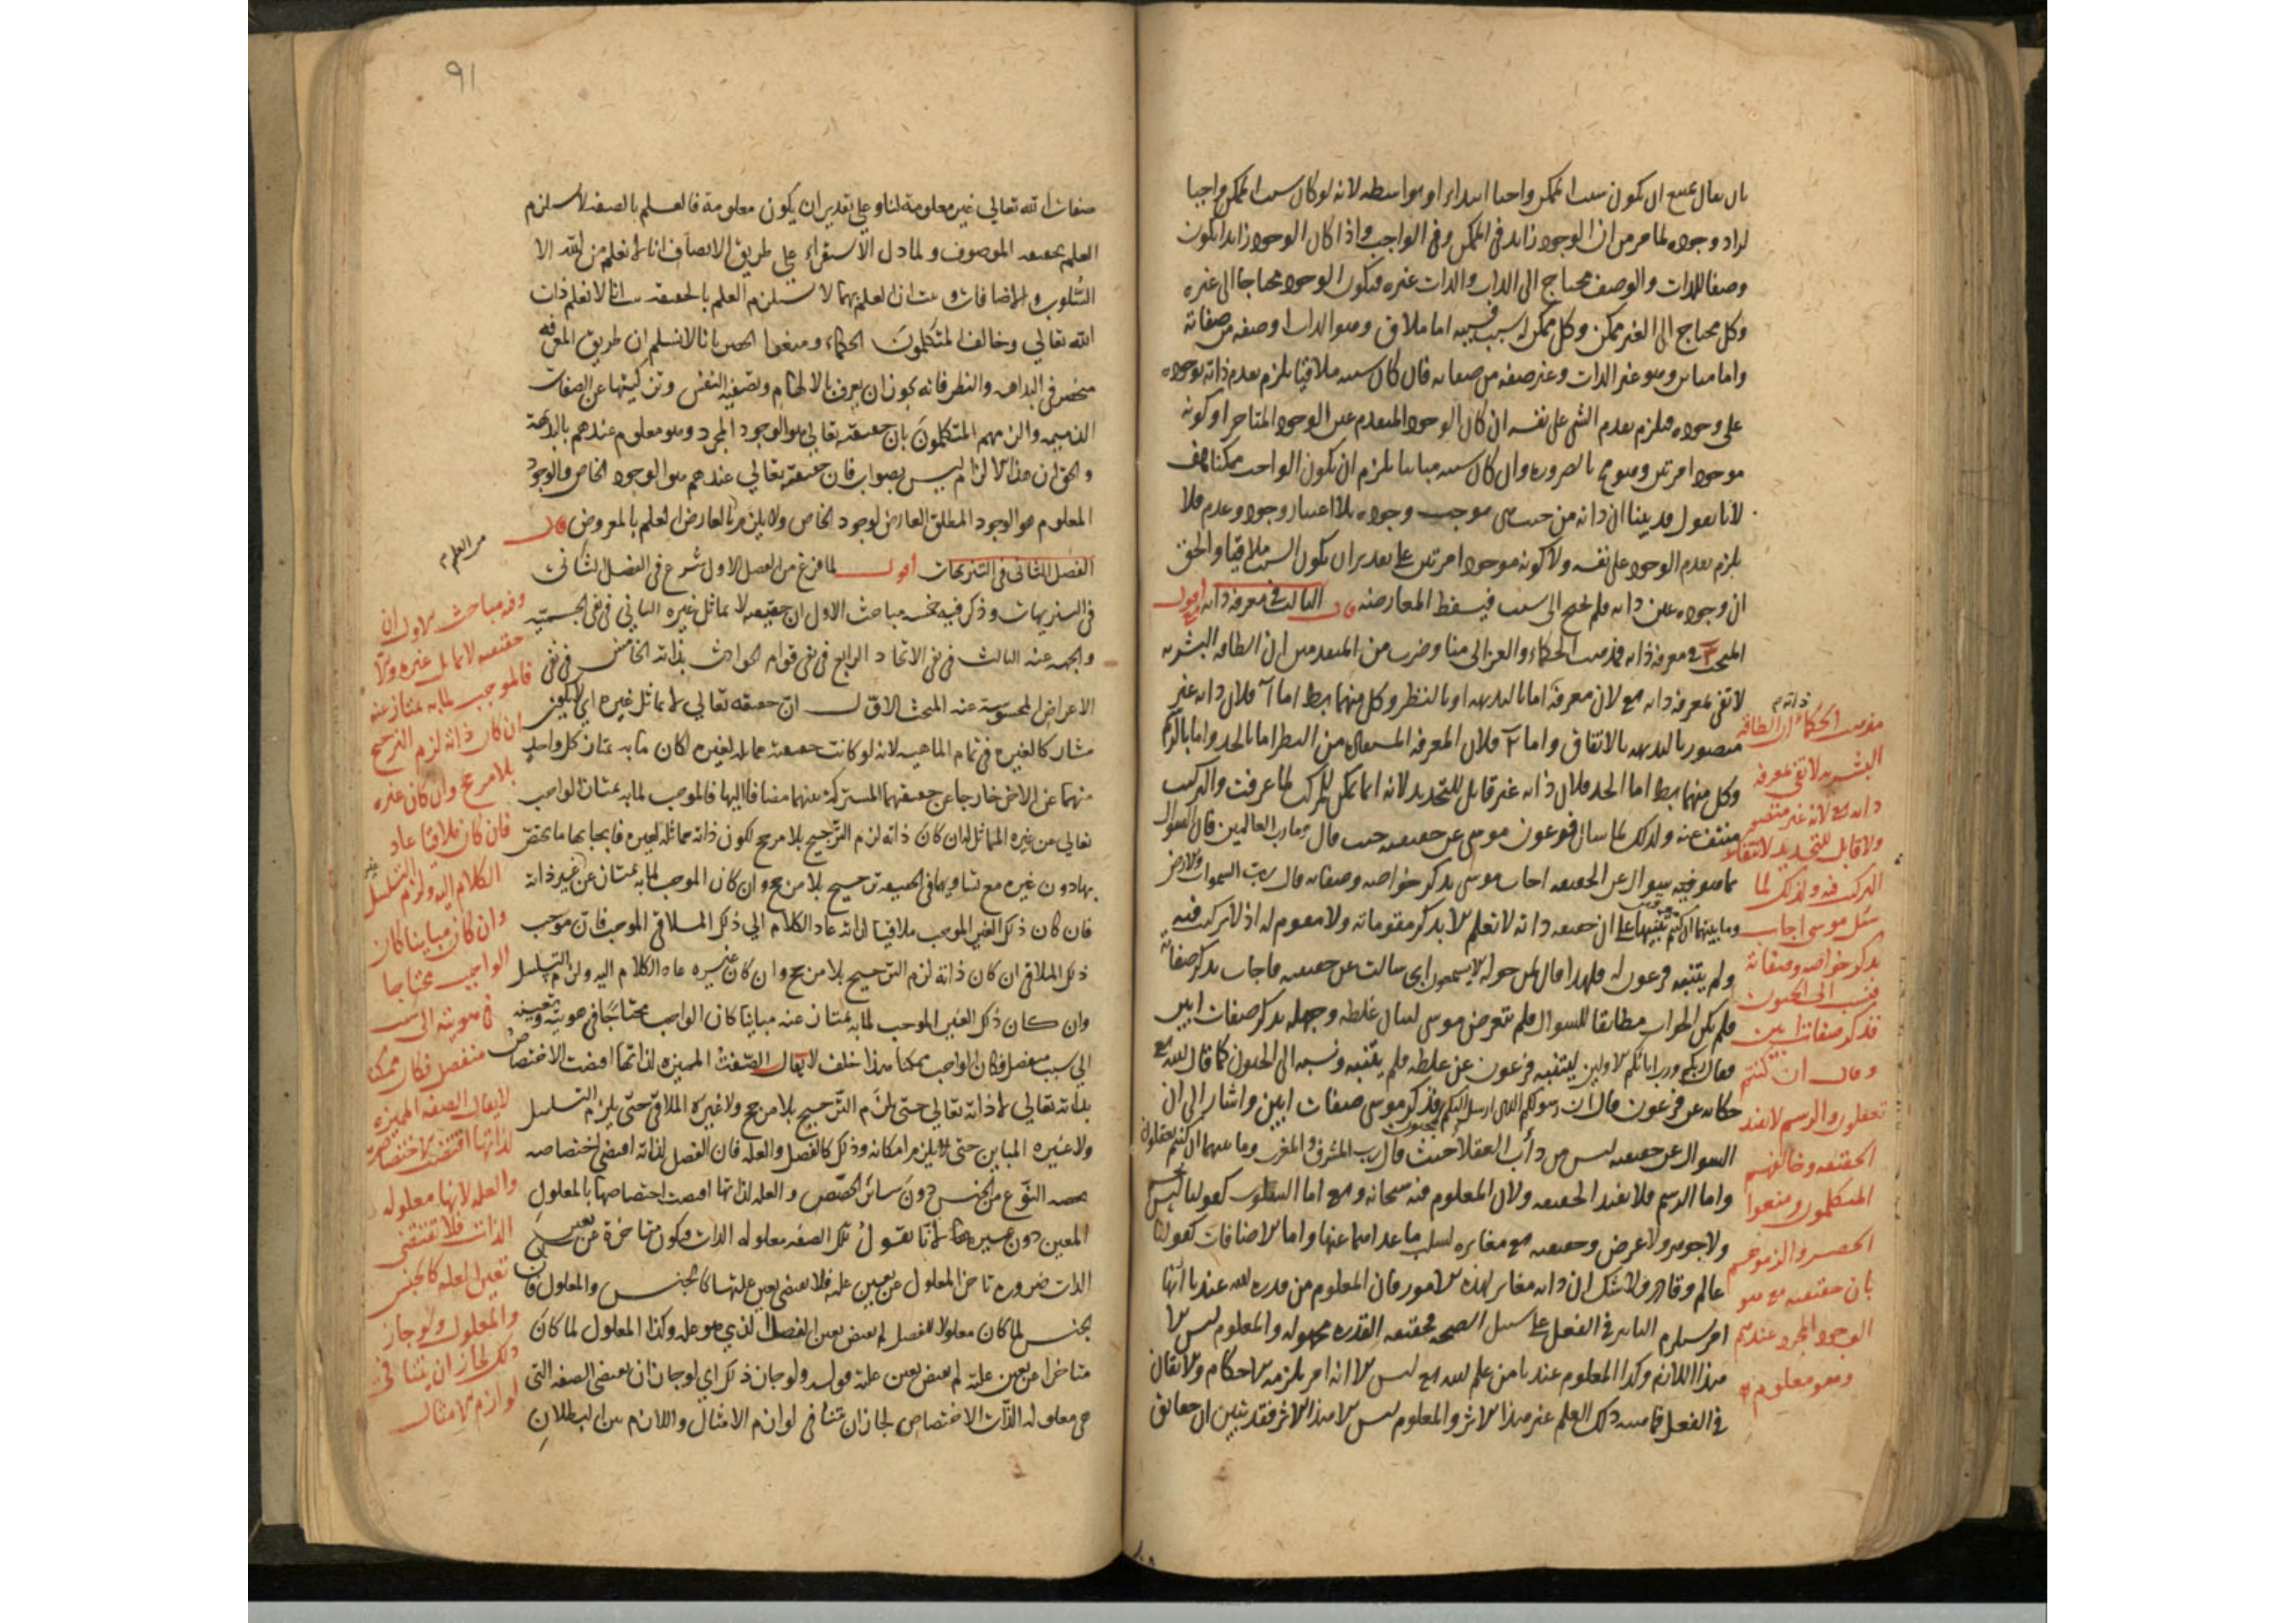 بان يقال يمتنع ان يكون سبب الممكن واجبا ابتداء او بواسطة لانه لو كان سبب الممكن واجبا
لزاد وجوده لما مر من ان الوجود زايد في الممكن وفي الواجب واذا كان الوجود زايدا يكون
وصفا للذات والوصف محتاج الى الذات والذات غيره فيكون الوجود محتاجا الى غيره
وكل محتاج الى الغير ممكن وكل ممكن له سبب فسببه اما ملاقى وهو الذات او صفة من صفاته
واما مباين وهو غير الذات وغير صفة من صفاته فان كان سببه ملاقيا يلزم تقدم ذاته بوجوده
على وجوده فيلزم تقدم الشي على نفسه ان كان الوجود المتقدم عين الوجود المتاخر او كونه
موجودا مرتين وهو مح بالضرورة وان كان سببه مباينا يلزم ان يكون الواجب ممكنا هف
لانا نقول قد بينا ان ذاته من حيث هي موجب وجوده بلا اعتبار وجود وعدم فلا
يلزم تقدم الوجود على نفسه ولا كونه موجودا مرتين على تقدير ان يكون السبب ملاقيا والحق
ان وجوده عين ذاته فلم يحتج الى سبب فيسقط المعارضة قال الثالث في معرفة ذاته اقول
المبحث ٣ في معرفة ذاته فمذهب الحكماء والغزالي منا وضرب من المتقدمين ان الطاقة البشرية
لا تفي بمعرفة ذاته تع لان معرفة اما بالبديهه او بالنظر وكل منهما بط اما آ فلان ذاته غير
متصور بالبديهه بالاتفاق واما ٢ فلان المعرفة المستفادة من النظر اما بالحد واما بالرسم
وكل منهما بط اما الحد فلان ذاته غير قابل للتحديد لانه انما يمكن للمركب لما عرفت والتركيب
منتف عنه ولذلك لما سال فرعون موسى عن حقيقته حيث قال وما رب العالمين فان السوال
بما هو فيه سوال عن الحقيقه اجاب موسى بذكر خواصه وصفاته قال رب السموات والارض
وما بينهما ان كنتم موقنين تنبيها على ان حقيقه ذاته لا تعلم الا بذكر مقوماته ولا مقوم له اذ لا تركيب فيه
ولم يتنبه فرعون له فلهذا قال لمن حوله الا تستمعون اي سالت عن حقيقته فاجاب بذكر صفاته
فلم يكن الجواب مطابقا للسوال فلم يتعرض موسى لبيان غلطه وجهله بذكر صفات ابين
فقال ربكم ورب ابائكم الاولين ليتنبه فرعون عن غلطه فلم يتنبه ونسبه الى الجنون كما قال الله تع
حكاية عن فرعون قال ان رسولكم الذي ارسل اليكم لمجنون فذكر موسى صفات ابين واشار الى ان
السوال عن حقيقته ليس من دأب العقلا حيث قال رب المشرق والمغرب وما بينهما ان كنتم تعقلون
واما الرسم فلا يفيد الحقيقه ولان المعلوم منه سبحانه وتع اما السلوب كقولنا ليس بجسم
ولا جوهر ولا عرض وحقيقته تع مغايره لسلب ما عداها عنها واما الاضافات كقولنا
عالم وقادر ولا شك ان ذاته مغاير لهذه الامور فان المعلوم من قدرة الله عندنا انها
امر يستلزم التاثير في الفعل على سبيل الصحه فحقيقه القدرة مجهوله والمعلوم ليس الا
هذا اللازم وكذا المعلوم عندنا من علم الله تع ليس الا انه امر يلزمه الاحكام والاتقان
في الفعل فماهية ذلك العلم غير هذا الاثر والمعلوم ليس الا هذا الاثر فقد تبين ان حقائق
ذاته م
مذهب الحكما ان الطاقه
البشريه لا تفي بمعرفه
ذاته تع لانه غير متصور
ولا قابل للتحديد لانتفاء
التركيب فيه ولذلك لما
سئل موسى اجاب
بذكر خواصه وصفاته
فنسب الى الجنون
فذكر صفات ابين
وقال ان كنتم
تعقلون والرسم لا يفيد
الحقيقه وخالفهم
المتكلمون ومنعوا
الحصر والزموهم
بان حقيقته تع هو
الوجود المجرد عندهم
وهو معلوم
٩١
صفات الله تعالى غير معلومة لنا وعلى تقدير ان يكون معلومة فالعلم بالصفة لا يستلزم
العلم بحقيقه الموصوف ولما دل الاستقراء على طريق الانصاف انا لا نعلم من الله الا
السلوب والاضافات وثبت ان العلم بهما لا يستلزم العلم بالحقيقه ثبت انا لا نعلم ذات
الله تعالى وخالف المتكلمون الحكماء ومنعوا الحصر بانا لا نسلم ان طريق المعرفه
منحصر في البداهه والنظر فانه يجوز ان يعرف بالالهام وتصفية النفس وتزكيتها عن الصفات
الذميمه والزمهم المتكلمون بان حقيقته تعالى هو الوجود المجرد وهو معلوم عندهم بالبداهة
والحق ان هذا الالزام ليس بصواب فان حقيقته تعالى عندهم هو الوجود الخاص والوجود
المعلوم هو الوجود المطلق العارض لوجود الخاص ولا يلزم من العلم بالعارض العلم بالمعروض قال
الفصل الثاني في التنزيهات اقول لما فرغ من الفصل الاول شرع في الفصل الثاني
في التنزيهات وذكر فيه خمسة مباحث الاول ان حقيقته لا تماثل غيره الثاني في نفي الجسميّه
والجهه عنه الثالث في نفي الاتحاد الرابع في نفي قيام الحوادث بذاته الخامس في نفي
الاعراض المحسوسة عنه المبحث الاول ان حقيقته تعالى لا تماثل غيره اي لا يكون
مشاركا لغيره في تمام الماهيه لانه لو كانت حقيقته مماثله لغيره لكان ما به يمتاز كل واحد
منهما عن الاخر خارجا عن حقيقتهما المشتركة بينهما مضافا اليها فالموجب لما به يمتاز الواجب
تعالى من غيره المماثل له ان كان ذاته لزم الترجيح بلا مرجح لكون ذاته مماثله لغيره فايجابها ما يختص
بها دون غيره مع تساويهما في الحقيقه ترجيح بلا مرجح وان كان الموجب لما به يمتاز عن غيره غير ذاته
فان كان ذلك الغير الموجب ملاقيا لذاته عاد الكلام الى ذلك الملاقي الموجب فان موجب
ذلك الملاقي ان كان ذاته لزم الترجيح بلا مرجح وان كان غيره عاد الكلام اليه ولزم التسلسل
وان كان ذلك الغير الموجب لما به يمتاز عنه مباينا كان الواجب محتاجا في هويته وتعينه
الى سبب منفصل فكان الواجب ممكنا هذا خلف لا يقال الصفة المميزه لذاتها اقتضت الاختصاص
بذاته تعالى لا ذاته تعالى حتى يلزم الترجيح بلا مرجح ولا غيره الملاقي حتى يلزم التسلسل
ولا غيره المباين حتى يلزم امكانه وذلك كالفصل والعله فان الفصل لذاته اقتضى اختصاصه
بحصه النوع من الجنس دون سائر الحصص والعله لذاتها اقتضت اختصاصها بالمعلول
المعين دون غيره لانا نقول تلك الصفه معلوله الذات فيكون متاخرة عن تعين
الذات ضرورة تاخر المعلول عن تعين علته فلا يقتضي تعين علتها كالجنس والمعلول فان
الجنس لما كان معلولا للفصل لم يقتض تعين الفصل الذي هو علته وكذا المعلول لما كان
متاخرا عن تعين علته لم يقتض تعين علته قوله ولو جاز ذلك اي لو جاز ان تقتضي الصفه التي
هي معلوله الذات الاختصاص لجاز ان تتنافى لوازم الامثال واللازم بين البطلان
من العلم م
وفيه مباحث الاول ان
حقيقته لا تماثل غيره والا
فالموجب لما به يمتاز عنه
ان كان ذاته لزم الترجيح
بلا مرجح وان كان غيره
فان كان ملاقيا عاد
الكلام اليه ولزم التسلسل
وان كان مباينا كان
الواجب محتاجا
في هويته الى سبب
منفصل فكان ممكنا
لا يقال الصفه المميزه
لذاتها اقتضت الاختصاص
والعله لانها معلوله
الذات فلا تقتضي
تعين العله كالجنس
والمعلول ولو جاز
ذلك لجاز ان يتنافى
لوازم الامثال